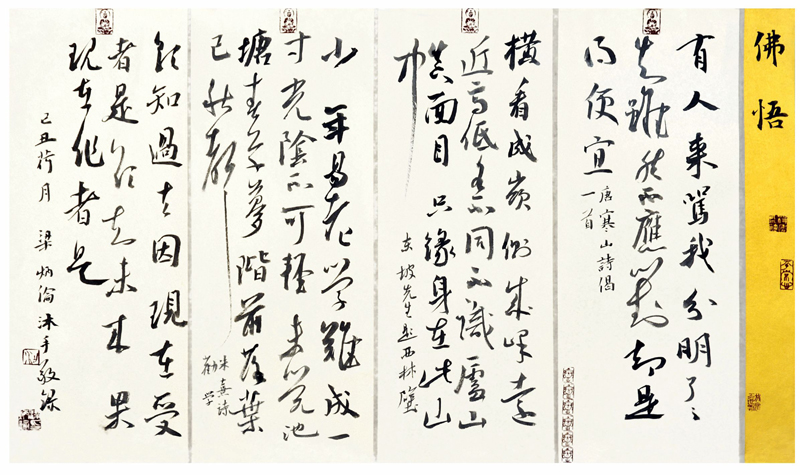 佛悟
有人來罵我分明了〻
知雖然不應對却是
得便宜
唐寒山詩偈
一首
橫看成嶺側成峰遠
近高低各不同不識廬山
真面目只緣身在此山
中
東坡先生題西林壁
少年易老學難成一
寸光陰不可輕未覺池
塘春草夢階前落葉
已秋聲
朱熹詩
勸學
欲知過去因現在受
者是欲知未來果
現在作者是
己丑荷月 梁炳倫沐手敬錄